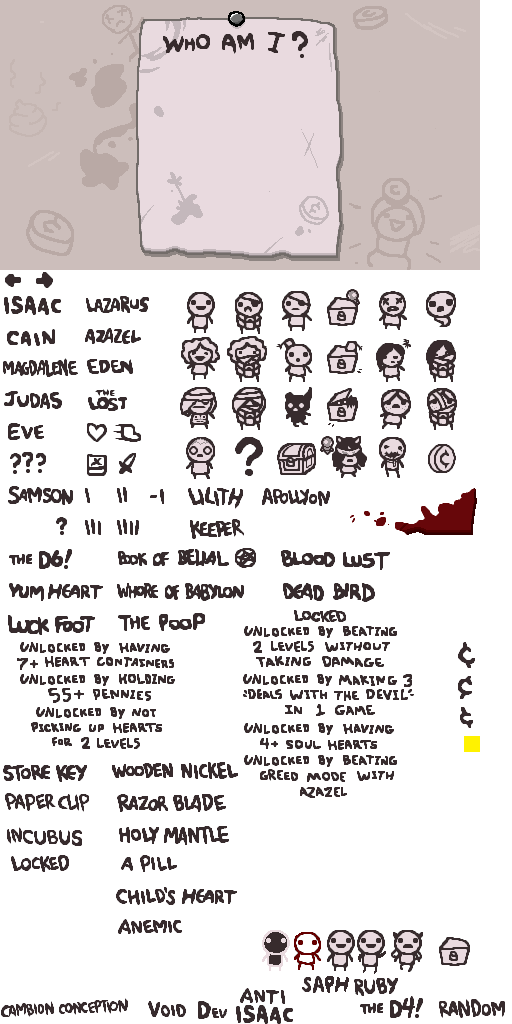 WHO AM I?
ISAAC LAZARUS
CAIN AZAZEL
MAGDALENE EDEN
JUDAS THE LOST
EVE
??? ?
SAMSON I II -I LILITH APOLLYON
? III IIII KEEPER
THE D6! BOOK OF BELIAL BLOOD LUST
YUM HEART WHORE OF BABYLON DEAD BIRD
LUCK FOOT THE POOP
LOCKED
UNLOCKED BY HAVING
7+ HEART CONTAINERS
UNLOCKED BY HOLDING
55+ PENNIES
UNLOCKED BY NOT
PICKING UP HEARTS
FOR 2 LEVELS
UNLOCKED BY BEATING
2 LEVELS WITHOUT
TAKING DAMAGE
UNLOCKED BY MAKING 3
"DEALS WITH THE DEVIL"
IN 1 GAME
UNLOCKED BY HAVING
4+ SOUL HEARTS
UNLOCKED BY BEATING
GREED MODE WITH
AZAZEL
¢
¢
¢
STORE KEY WOODEN NICKEL
PAPER CLIP RAZOR BLADE
INCUBUS HOLY MANTLE
LOCKED A PILL
CHILD'S HEART
ANEMIC
SAPH RUBY
CAMBION CONCEPTION VOID DEV ANTI ISAAC THE D4! RANDOM